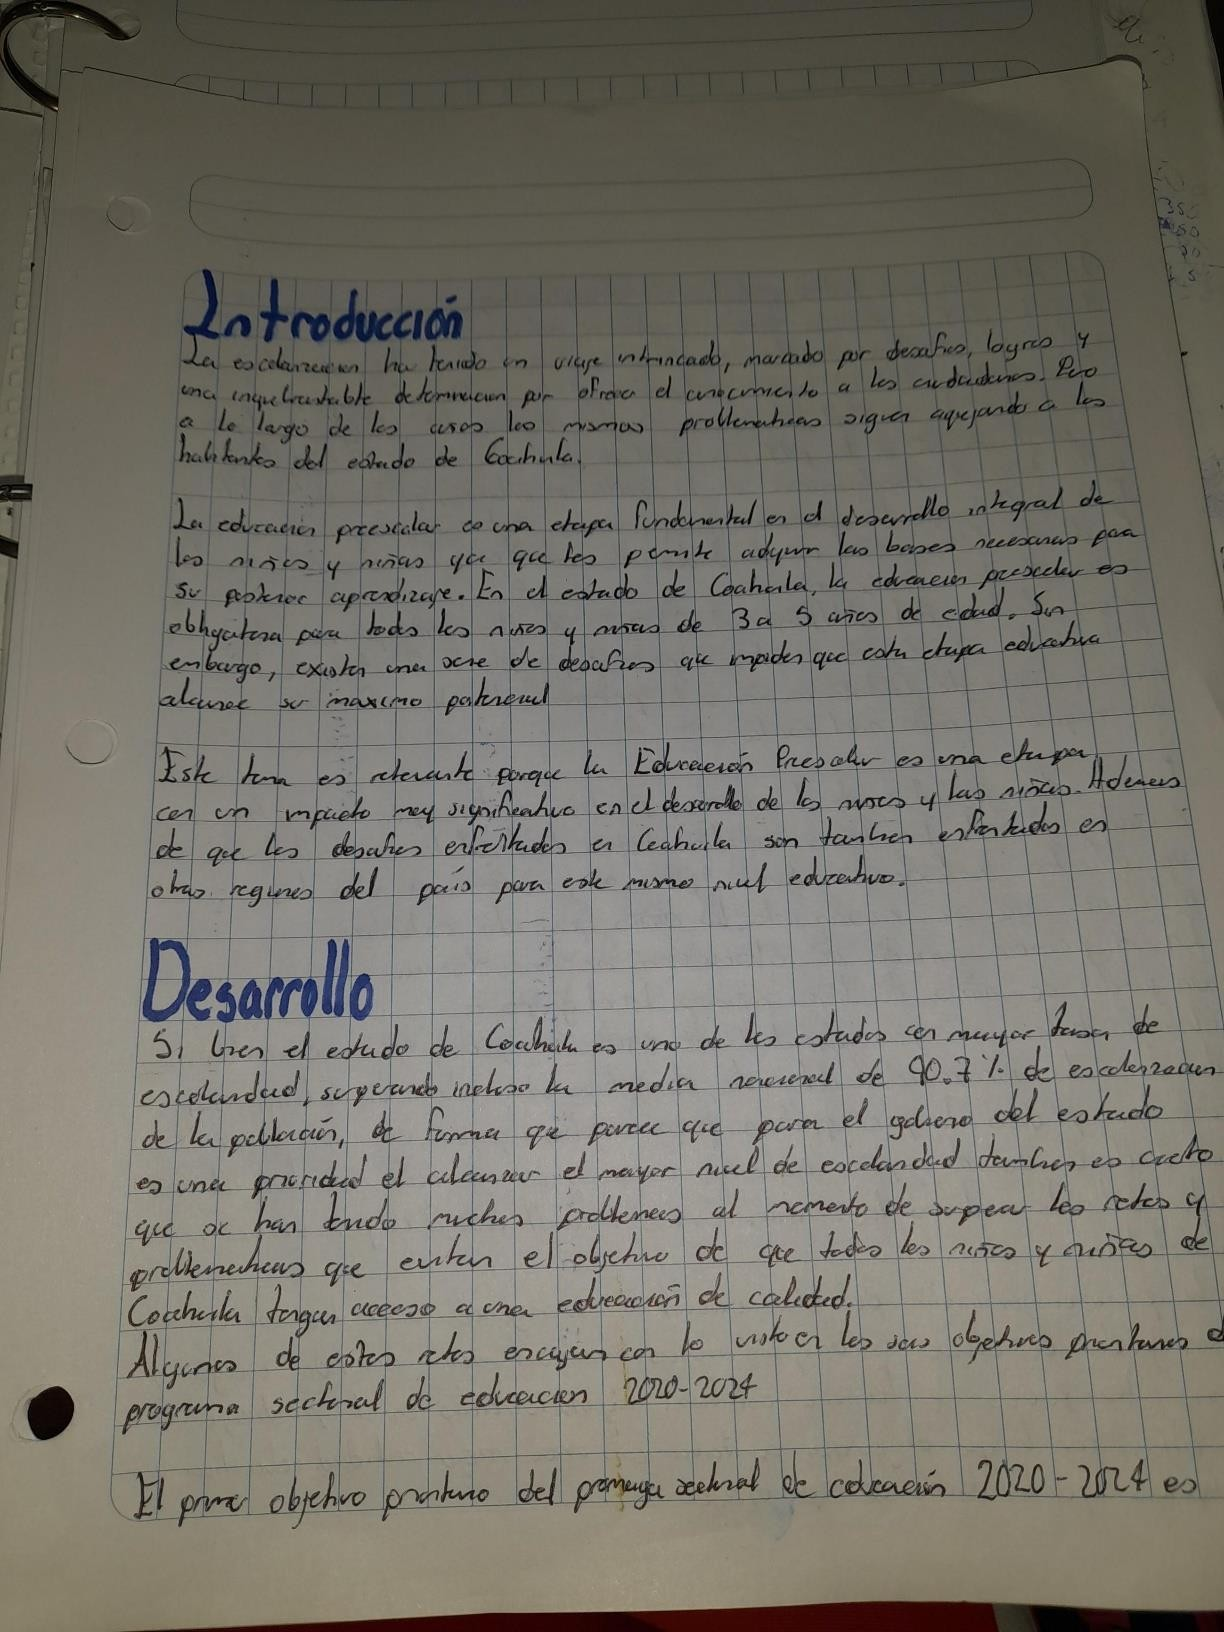 Introducción
La escolarizacion ha tenido un viaje intrincado, marcado por desafios, logros y
una inquebrantable determinacion por ofrecer el conocimiento a los ciudadanos. Pero
a lo largo de los años los mismos problematicas siguen aquejando a los
habitantes del estado de Coahuila.
La educacion preescolar es una etapa fundamental en el desarrollo integral de
los niños y niñas ya que les permite adquirir las bases necesarias para
su posterior aprendizaje. En el estado de Coahuila, la educacion preescolar es
obligatoria para todos los niños y niñas de 3 a 5 años de edad. Sin
embargo, existen una serie de desafios que impiden que esta etapa educativa
alcance su maximo potencial
Este tema es relevante porque la Educación Preescolar es una etapa
con un impacto muy significativo en el desarrollo de los niños y las niñas. Ademas
de que los desafios enfrentados en Coahuila son tambien enfrentados en
otras regiones del país para este mismo nivel educativo.
Desarrollo
Si bien el estado de Coahuila es uno de los estados con mayor tasa de
escolaridad, superando incluso la media nacional de 90.7% de escolarizacion
de la población, de forma que parece que para el gobierno del estado
es una prioridad el alcanzar el mayor nivel de escolaridad tambien es cierto
que se han tenido muchos problemas al momento de superar los retos y
problematicas que evitan el objetivo de que todos los niños y niñas de
Coahuila tengan acceso a una educación de calidad.
Algunos de estos retos encajan con lo visto en los seis objetivos prioritarios d
programa sectorial de educacion 2020-2024
El primer objetivo prioritario del sectorial de educación 2020-2024 es